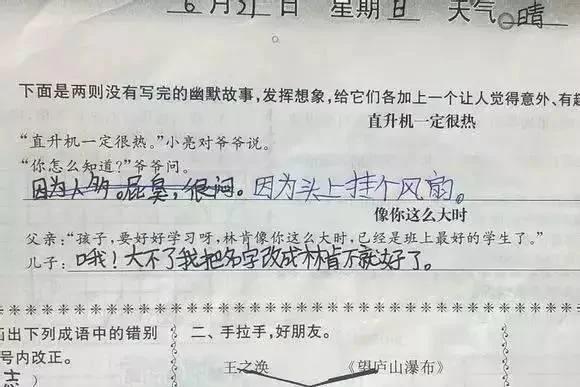 6月31日 星期日 天气 晴
下面是两则没有写完的幽默故事,发挥想象,给它们各加上一个让人觉得意外、有趣
直升机一定很热
“直升机一定很热。”小亮对爷爷说。
“你怎么知道?”爷爷问。
因为人多。屁臭,很闷。因为头上挂个风扇。
像你这么大时
父亲:“孩子,要好好学习呀,林肯像你这么大时,已经是班上最好的学生了。”
儿子:哦!大不了我把名字改成林肯不就好了。
出下列成语中的错别 二、手拉手,好朋友。
号内改正。 王之涣 《望庐山瀑布》